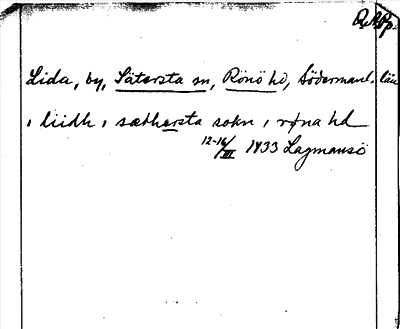 R.A.Pp.
Lida, by, Sätersta sn, Rönö hd, Södermanl. län
i liidh i sæthersta sokn i røna hd
12-16/III 1433 Lagmansö